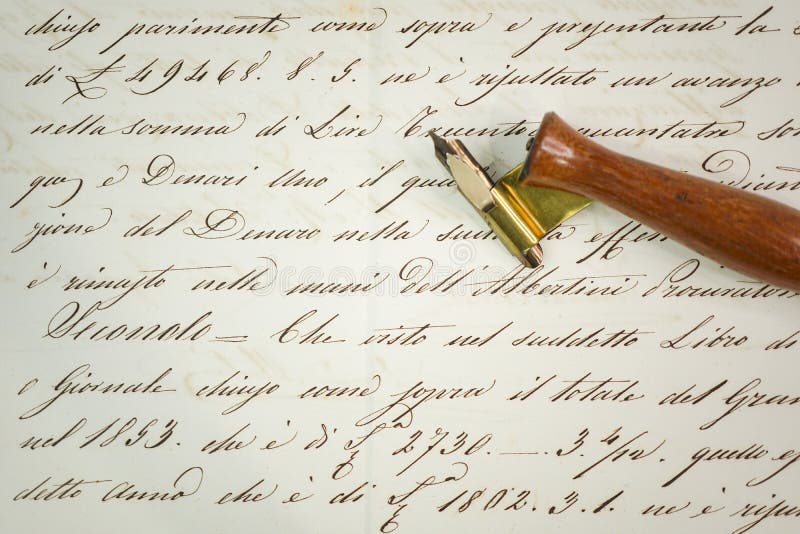 chiuso parimente come sopra e presentante la
di £ 49468. 8. 9. ne è risultato un avanzo
nella somma di Lire Trecento quarantatre
e Denari Uno, il
zione del Denaro nella
è rimasto nelle mani dell'Albertini Procurator
Secondo = Che visto nel suddetto Libro di
o Giornale chiuso come sopra il totale del Gran
nel 1853. che è di £ 2730. — 3. 4/12. quello
detto Anno che è di £ 1802. 3. 1. ne è
dreamstime